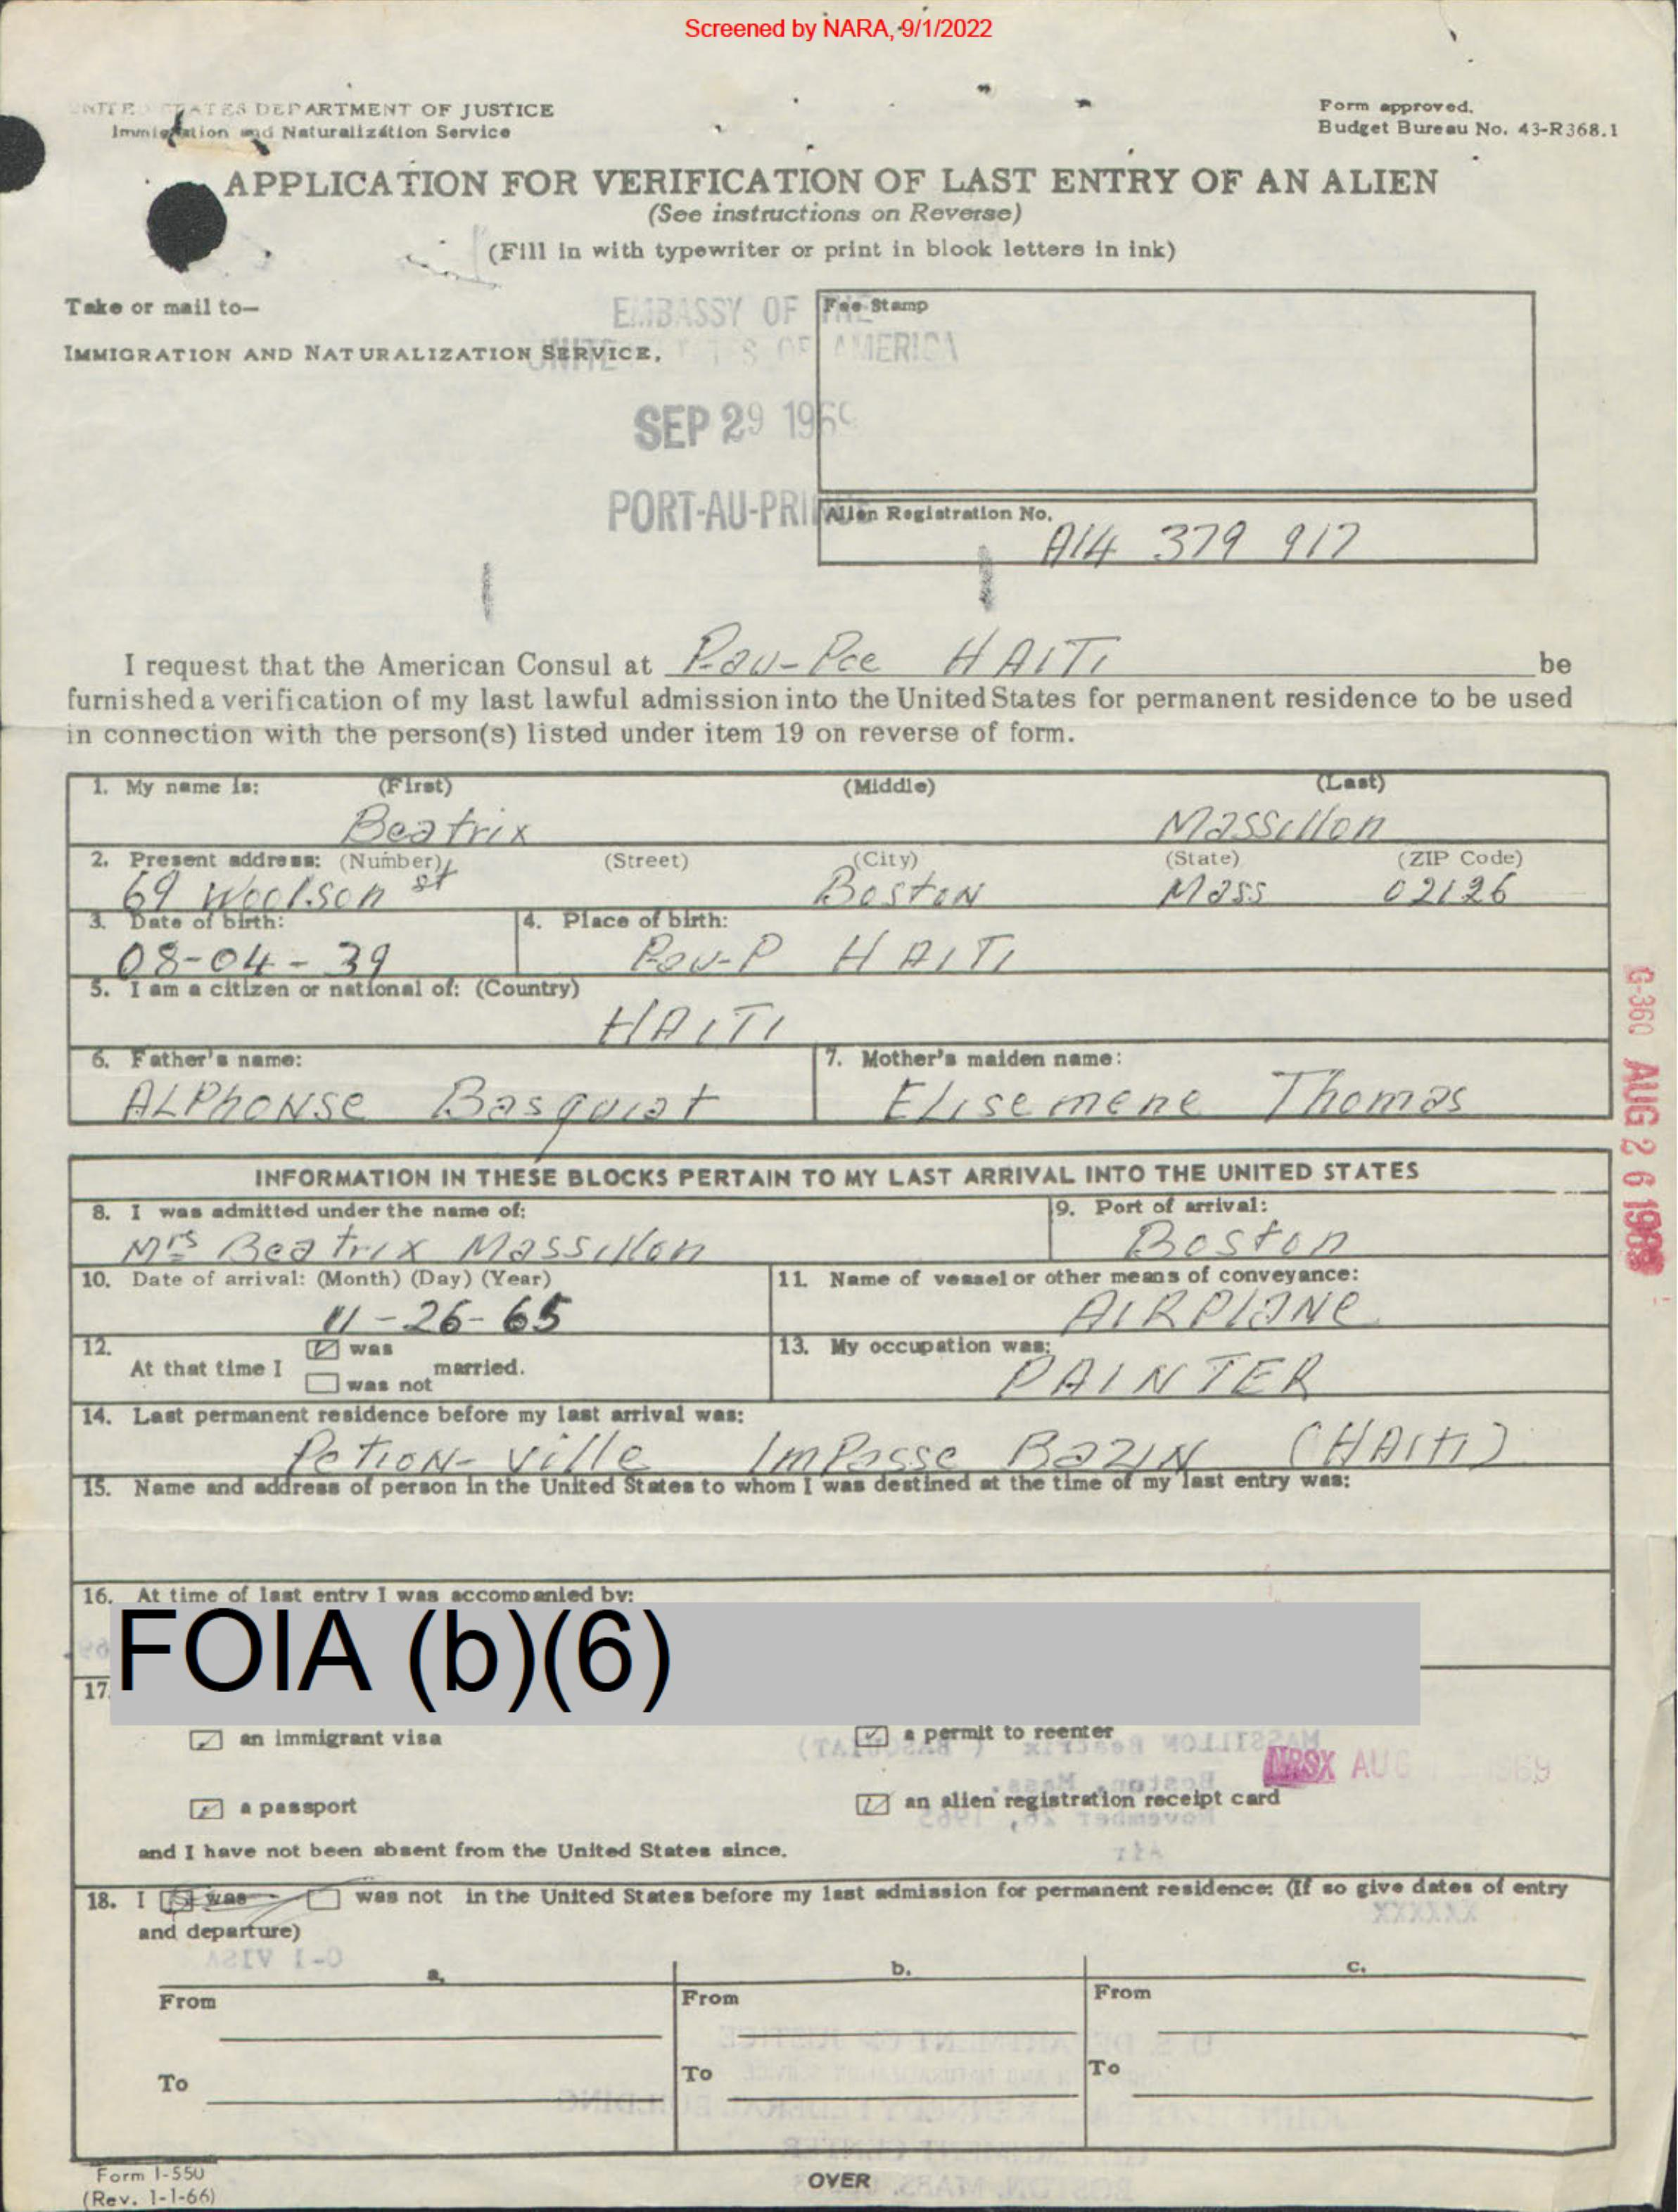 Screened by NARA, 9/1/2022
UNITED STATES DEPARTMENT OF JUSTICE
Immigration and Naturalization Service
Form approved.
Budget Bureau No. 43-R368.1
APPLICATION FOR VERIFICATION OF LAST ENTRY OF AN ALIEN
(See instructions on Reverse)
(Fill in with typewriter or print in block letters in ink)
Take or mail to—
IMMIGRATION AND NATURALIZATION SERVICE,
EMBASSY OF THE
UNITED STATES OF AMERICA
SEP 29 1969
PORT-AU-PRINCE
Fee Stamp
Alien Registration No.
A14 379 917
I request that the American Consul at P-au-Pce HAITI be
furnished a verification of my last lawful admission into the United States for permanent residence to be used
in connection with the person(s) listed under item 19 on reverse of form.
1. My name is: (First) (Middle) (Last)
Beatrix Massillon
2. Present address: (Number) (Street) (City) (State) (ZIP Code)
69 Woolson st Boston Mass 02126
3. Date of birth: 4. Place of birth:
08-04-39 P-au-P HAITI
5. I am a citizen or national of: (Country)
HAITI
6. Father's name: 7. Mother's maiden name:
ALPhONSe Basquiat Elisemene Thomas
INFORMATION IN THESE BLOCKS PERTAIN TO MY LAST ARRIVAL INTO THE UNITED STATES
8. I was admitted under the name of: 9. Port of arrival:
Mrs Beatrix Massillon Boston
10. Date of arrival: (Month) (Day) (Year) 11. Name of vessel or other means of conveyance:
11-26-65 AIRPlANe
12. At that time I was married.
was not
13. My occupation was:
PAINTER
14. Last permanent residence before my last arrival was:
Petion-ville ImPasse BazIN (HAITI)
15. Name and address of person in the United States to whom I was destined at the time of my last entry was:
16. At time of last entry I was accompanied by:
FOIA (b)(6)
17.
an immigrant visa a permit to reenter
a passport an alien registration receipt card
and I have not been absent from the United States since.
MASSILLON Beatrix (BASQUIAT)
Boston, Mass.
November 26, 1965
Air
NRSX AUG
18. I was was not in the United States before my last admission for permanent residence: (If so give dates of entry
and departure)
XXXXXX
O-1 VISA
a. b. c.
From From From
To To To
Form I-550
(Rev. 1-1-66)
OVER
G-360 AUG 26 1969